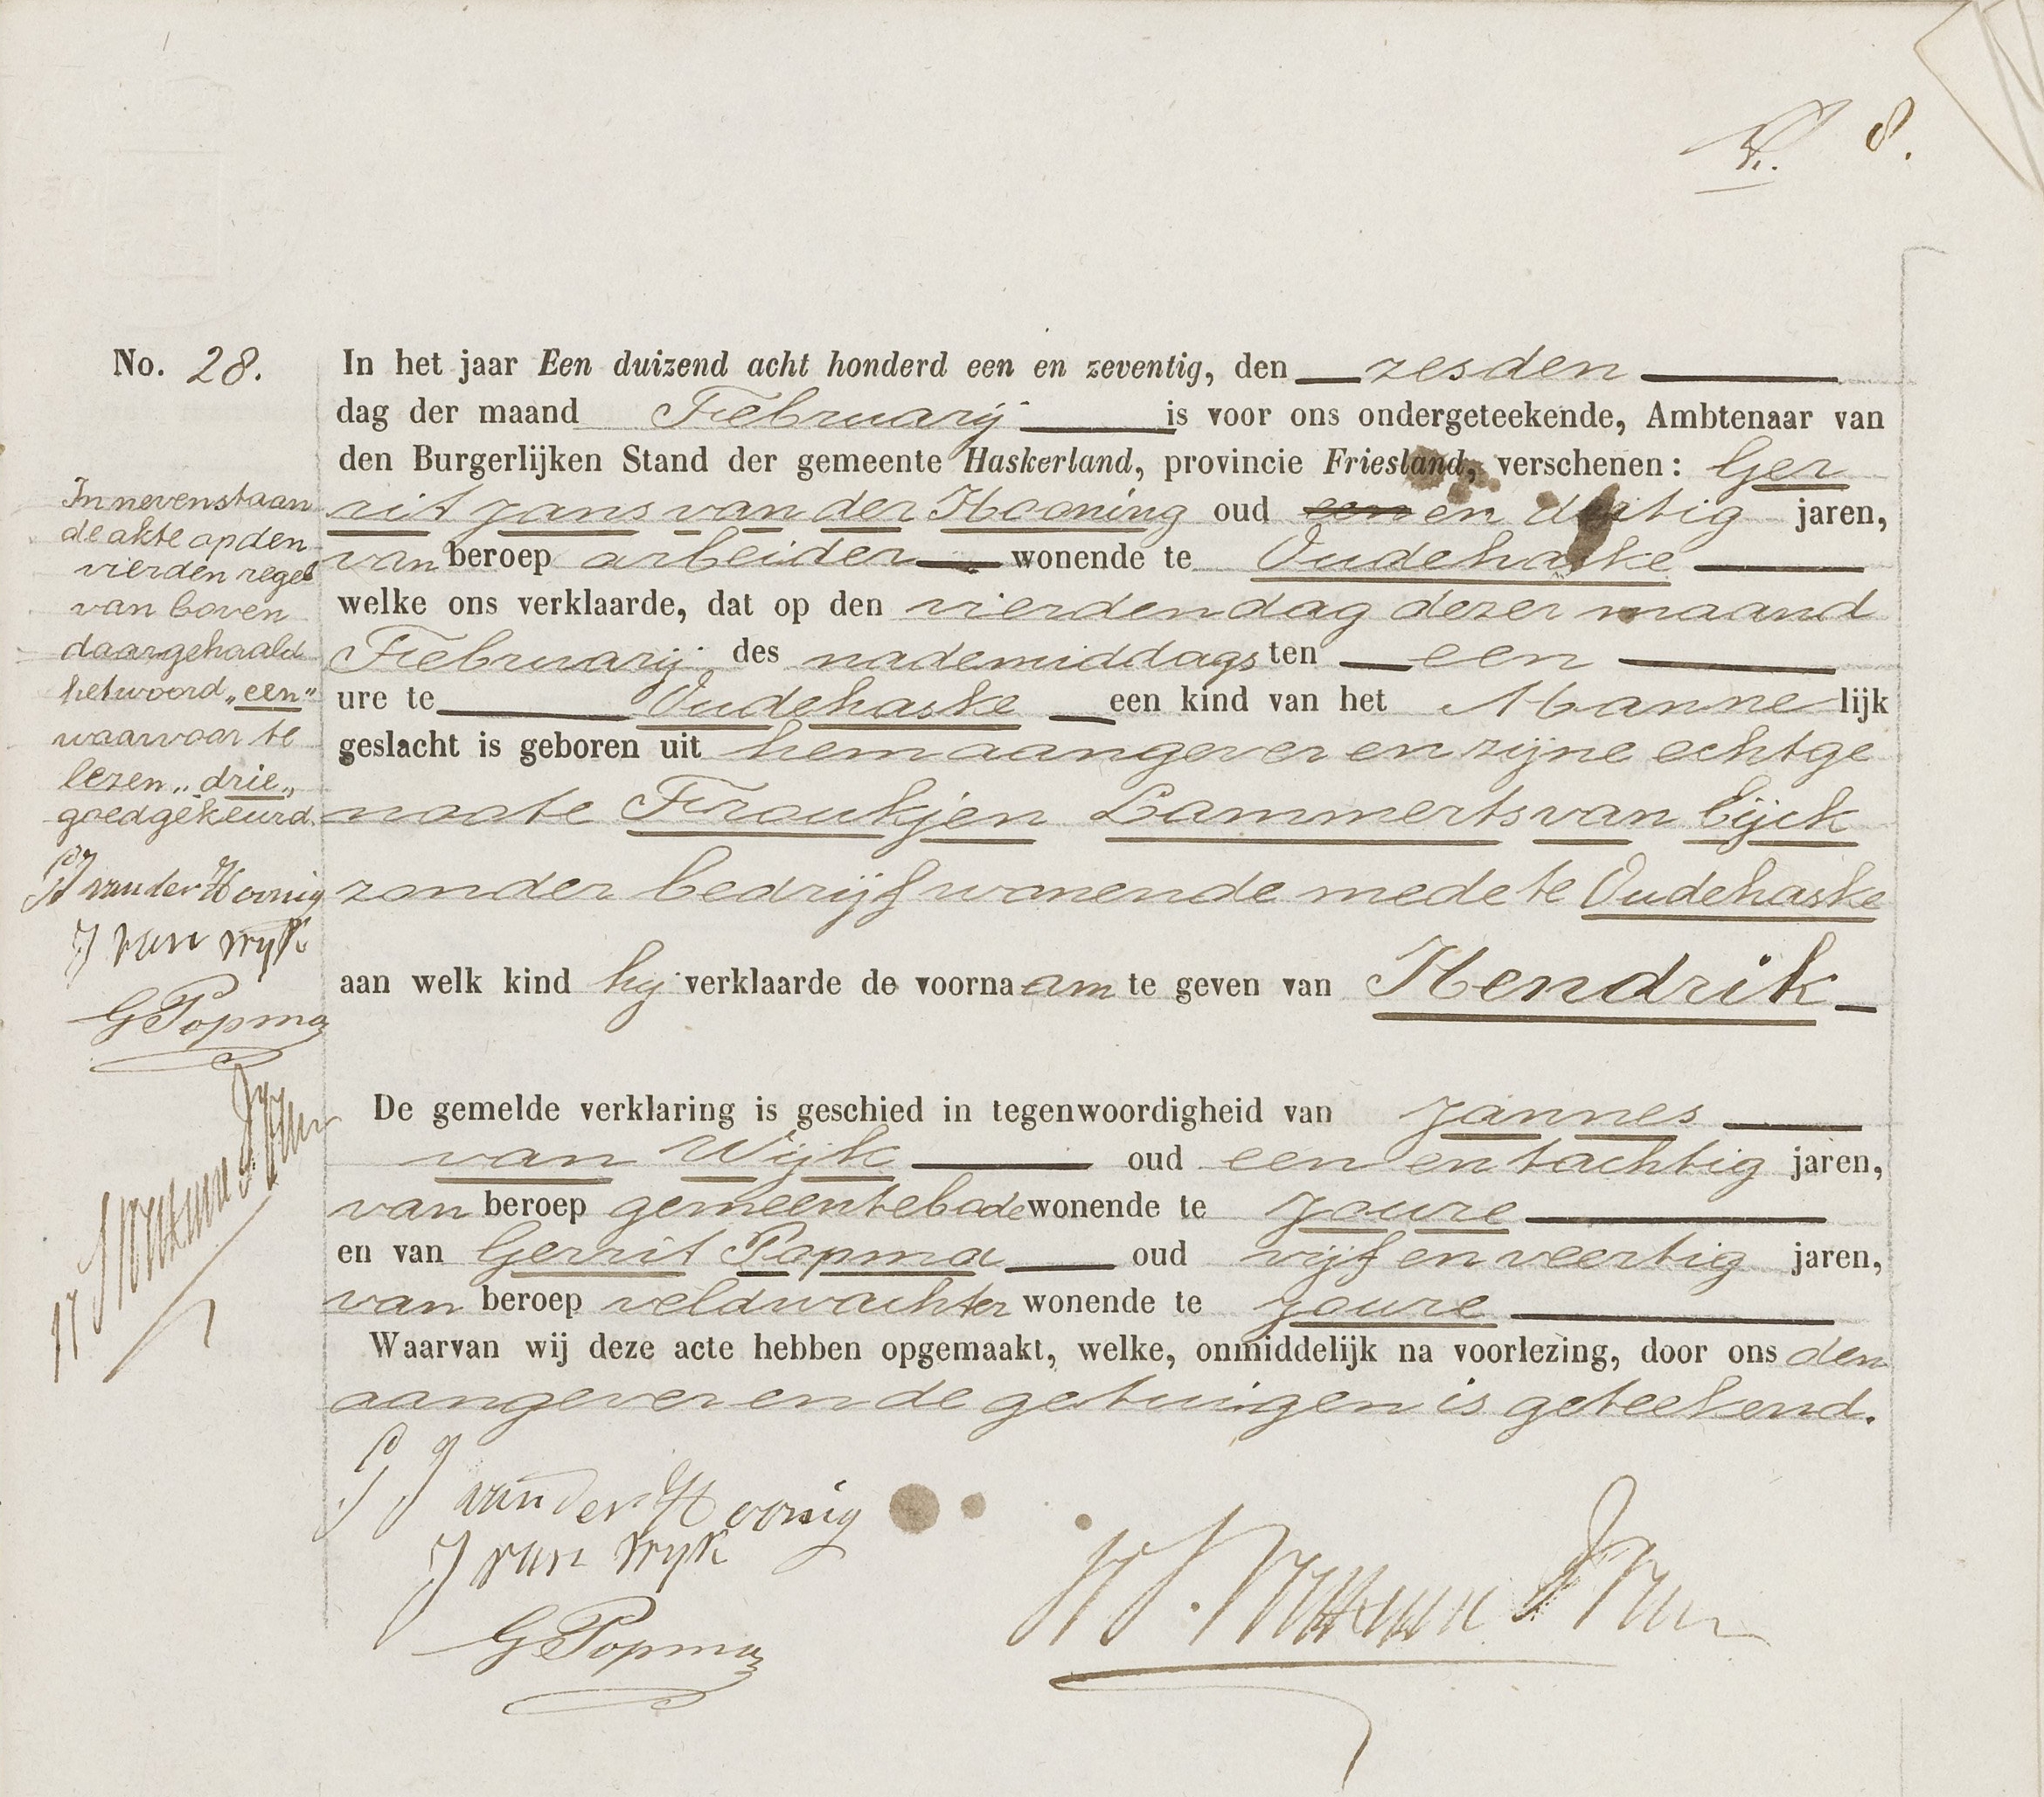 8.
No. 28.
In het jaar Een duizend acht honderd een en zeventig, den zesden
dag der maand Februarij is voor ons ondergeteekende, Ambtenaar van
den Burgerlijken Stand der gemeente Haskerland, provincie Friesland, verschenen: Ger
rit Jans van der Hooning oud een en dertig jaren,
van beroep arbeider wonende te Oudehaske
welke ons verklaarde, dat op den vierden dag dezer maand
Februarij des nademiddags ten een
ure te Oudehaske een kind van het Manne lijk
geslacht is geboren uit hem aangever en zijne echtge
noote Froukjen Lammerts van Eijck
zonder bedrijf wonende mede te Oudehaske
aan welk kind hij verklaarde de voorna am te geven van Hendrik
De gemelde verklaring is geschied in tegenwoordigheid van Jannes
van Wijk oud een en tachtig jaren,
van beroep gemeentebode wonende te Joure
en van Gerrit Popma oud vijf en veertig jaren,
van beroep veldwachter wonende te Joure
Waarvan wij deze acte hebben opgemaakt, welke, onmiddelijk na voorlezing, door ons den
aangever en de getuigen is geteekend.
In nevenstaan
de akte op den
vierden regel
van boven
daargehaald
het woord „een"
waarvoor te
lezen „drie„
goedgekeurd.
GJ van der Hoonig
J van Wyk
G Popma
G J van der Hoonig
J van Wyk
G Popma